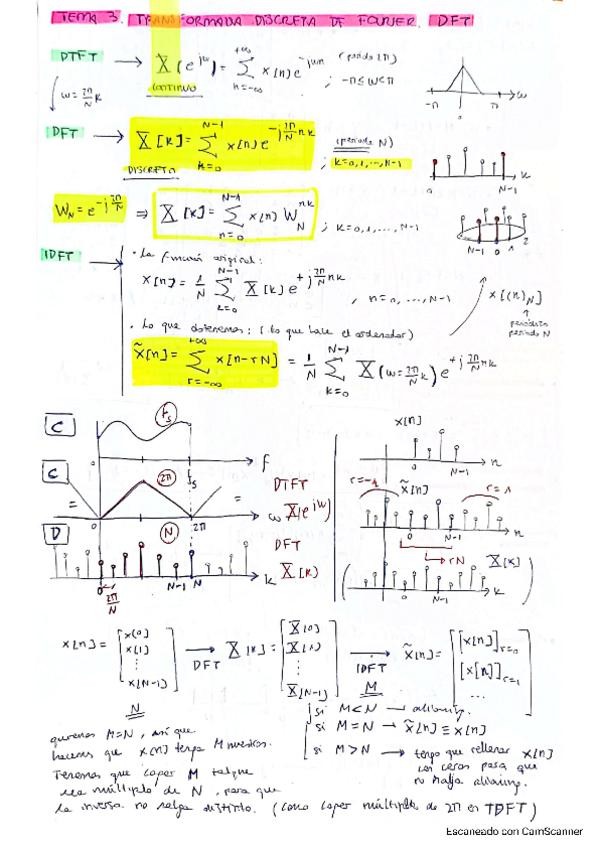 TEMA 3. TRANSFORMADA DISCRETA DE FOURIER. DFT
DTFT → X(e^{jω}) = Σ_{n=-∞}^{+∞} x[n] e^{-jωn} (periodo 2π) ; -π≤ω<π
CONTINUO
ω = 2π/N k
-π 0 π ω
DFT → X[k] = Σ_{k=0}^{N-1} x[n] e^{-j 2π/N nk} (periodo N) ; k=0,1,...,N-1
DISCRETO
0 N-1 k
W_N = e^{-j 2π/N} ⇒ X[k] = Σ_{n=0}^{N-1} x[n] W_N^{nk} ; k=0,1,...,N-1
N-1 0 1 2
IDFT
· La función original:
x[n] = 1/N Σ_{k=0}^{N-1} X[k] e^{+j 2π/N nk} , n=0,...,N-1
x[(n)_N]
periódico
periodo N
· Lo que obtenemos: (lo que hace el ordenador)
x̃[n] = Σ_{r=-∞}^{+∞} x[n-rN] = 1/N Σ_{k=0}^{N-1} X(ω=2π/N k) e^{+j 2π/N nk}
C fs
0 fs f
C 2π
= =
0 2π ω
DTFT
X(e^{jω})
D N
0 2π/N N-1 N k
DFT
X[k]
x[n]
0 N-1 n
r=-1 x̃[n] r=1
0 N-1 n
rN
X[k]
0 N-1 k
x[n] = [x[0] x[1] ⋮ x[N-1]] → DFT X[k] = [X[0] X[1] ⋮ X[N-1]] → IDFT x̃[n] = [[x[n]]_{r=0} [x[n]]_{r=1} ...]
N M
si M<N → aliasing.
si M=N → x̃[n] ≡ x[n]
si M>N → tengo que rellenar x[n]
con ceros para que
no haya aliasing.
queremos M=N, así que
hacemos que x[n] tenga M muestras.
Tenemos que coger M tal que
sea múltiplo de N, para que
la inversa no salga distinto. (como coger múltiplo de 2π en TDFT)
Escaneado con CamScanner